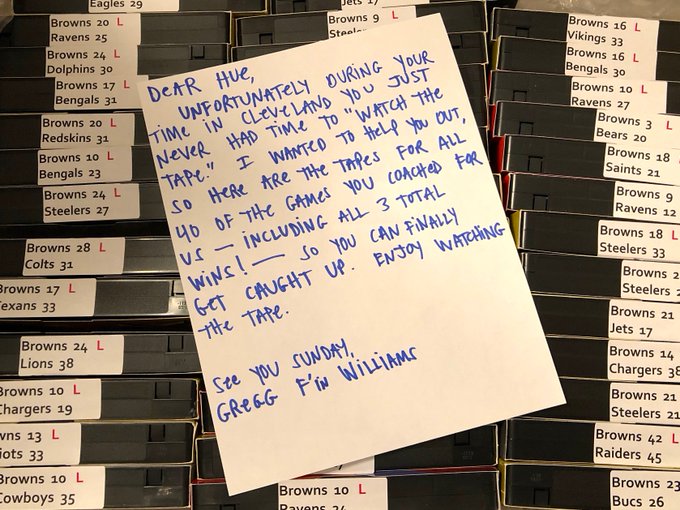 Eagles 29
Browns 20 L
Ravens 25
Browns 24 L
Dolphins 30
Browns 17 L
Bengals 31
Browns 20 L
Redskins 31
Browns 10 L
Bengals 23
Browns 24 L
Steelers 27
Browns 28 L
Colts 31
Browns 17 L
Texans 33
Browns 24 L
Lions 38
Browns 10 L
Chargers 19
wns 13 L
iots 33
Browns 10 L
Cowboys 35
Jets 17
Browns 9 L
Steel
DEAR HUE,
UNFORTUNATELY DURING YOUR
TIME IN CLEVELAND YOU JUST
NEVER HAD TIME TO "WATCH THE
TAPE." I WANTED TO HELP YOU OUT,
SO HERE ARE THE TAPES FOR ALL
40 OF THE GAMES YOU COACHED FOR
US — INCLUDING ALL 3 TOTAL
WINS! — SO YOU CAN FINALLY
GET CAUGHT UP. ENJOY WATCHING
THE TAPE.
SEE YOU SUNDAY,
GREGG F'IN WILLIAMS
Browns 10 L
Ravens 24
Browns 16 L
Vikings 33
Browns 16 L
Bengals 30
Browns 10 L
Ravens 27
Browns 3 L
Bears 20
Browns 18
Saints 21
Browns 9
Ravens 12
Browns 18 L
Steelers 33
Browns 2
Steelers 2
Browns 21
Jets 17
Browns 14
Chargers 38
Browns 21
Steelers 2
Browns 42 L
Raiders 45
Browns 23
Bucs 26